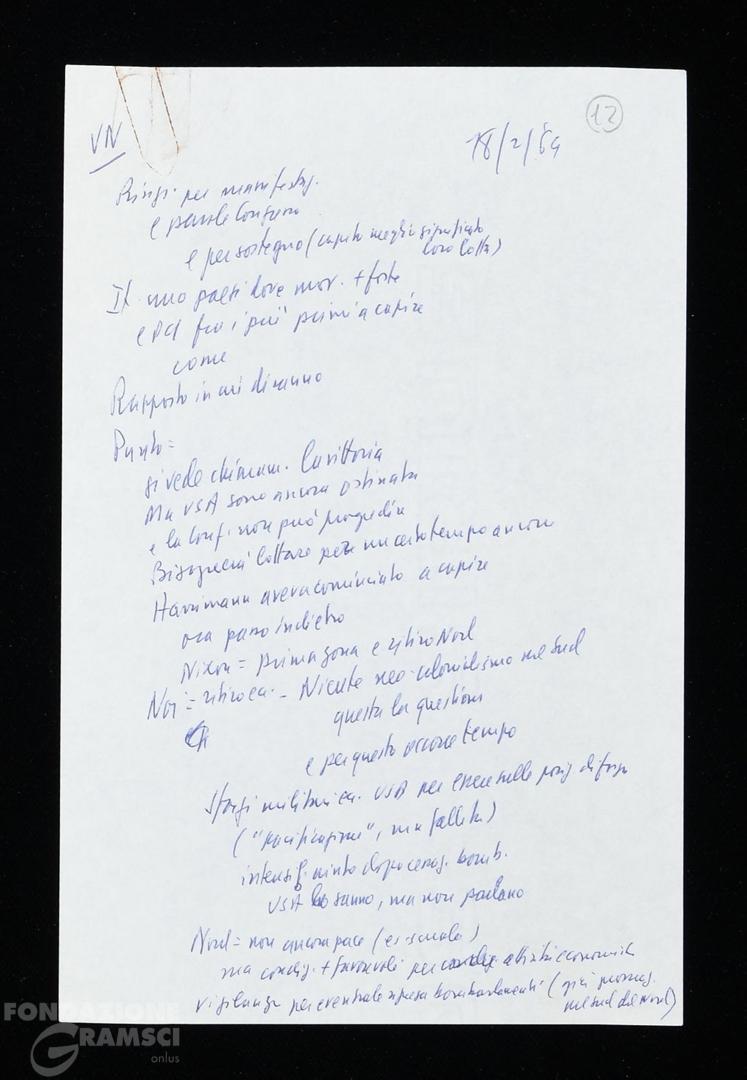 12
VN
18/2/69
Ringr. per manifestaz.
e parole Longo
e per sostegno (capito meglio significato
loro lotta)
It. uno paesi dove mov. + forte
e PCI fra i più primi a capire
come
Rapporto in cui diranno
Punto =
si vede chiaram. la vittoria
Ma USA sono ancora ostinati
e la Conf. non può progredire
Bisognerà lottare per un certo tempo ancora
Harriman aveva cominciato a capire
ora passo indietro
Nixon = prima zona e ritiro Nord
Noi = ritiro - Niente neo-colonialismo nel Sud
questa la questione
e per questo occorre tempo
Sforzi militari USA per essere nelle posiz. di forza
("pacificazione", ma fallita)
intensif. dopo cessaz. bomb.
USA lo sanno, ma non parlano
Nord = non ancora pace (es. scuole)
ma condiz. + favorevoli per attività economica
vigilanza per eventuale ripresa bombardamenti (
nel sud del Nord)
FONDAZIONE
GRAMSCI
onlus